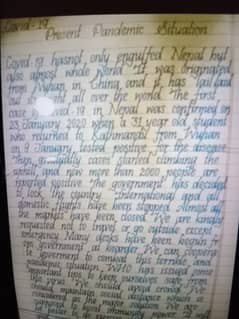 Covid-19
Present Pandemic Situation
Covid-19 has not only engulfed Nepal but
also almost whole world. It was originated
from Wuhan, in China, and it has
all over the world. The first
case of covid-19 in Nepal was confirmed on
23 January 2020 when a 31 year old student
who returned to Kathmandu from Wuhan
on 9 January tested positive for the disease
Thus, gradually cases started climbing the
and now more than 2000 people are
reported positive. The government has decided
to lock the country. Internationally and all
domestic flights have been stopped. Almost all
the markets have been closed. We are
requested not to travel or go outside except
emergency. Many
government We can cooperate
government to combat this terrible
pandemic situation. WHO has issued some
important tips to keep ourselves safe from
this virus. We should avoid
should maintain social distance which is
considered as the major We are
to boost immunity power